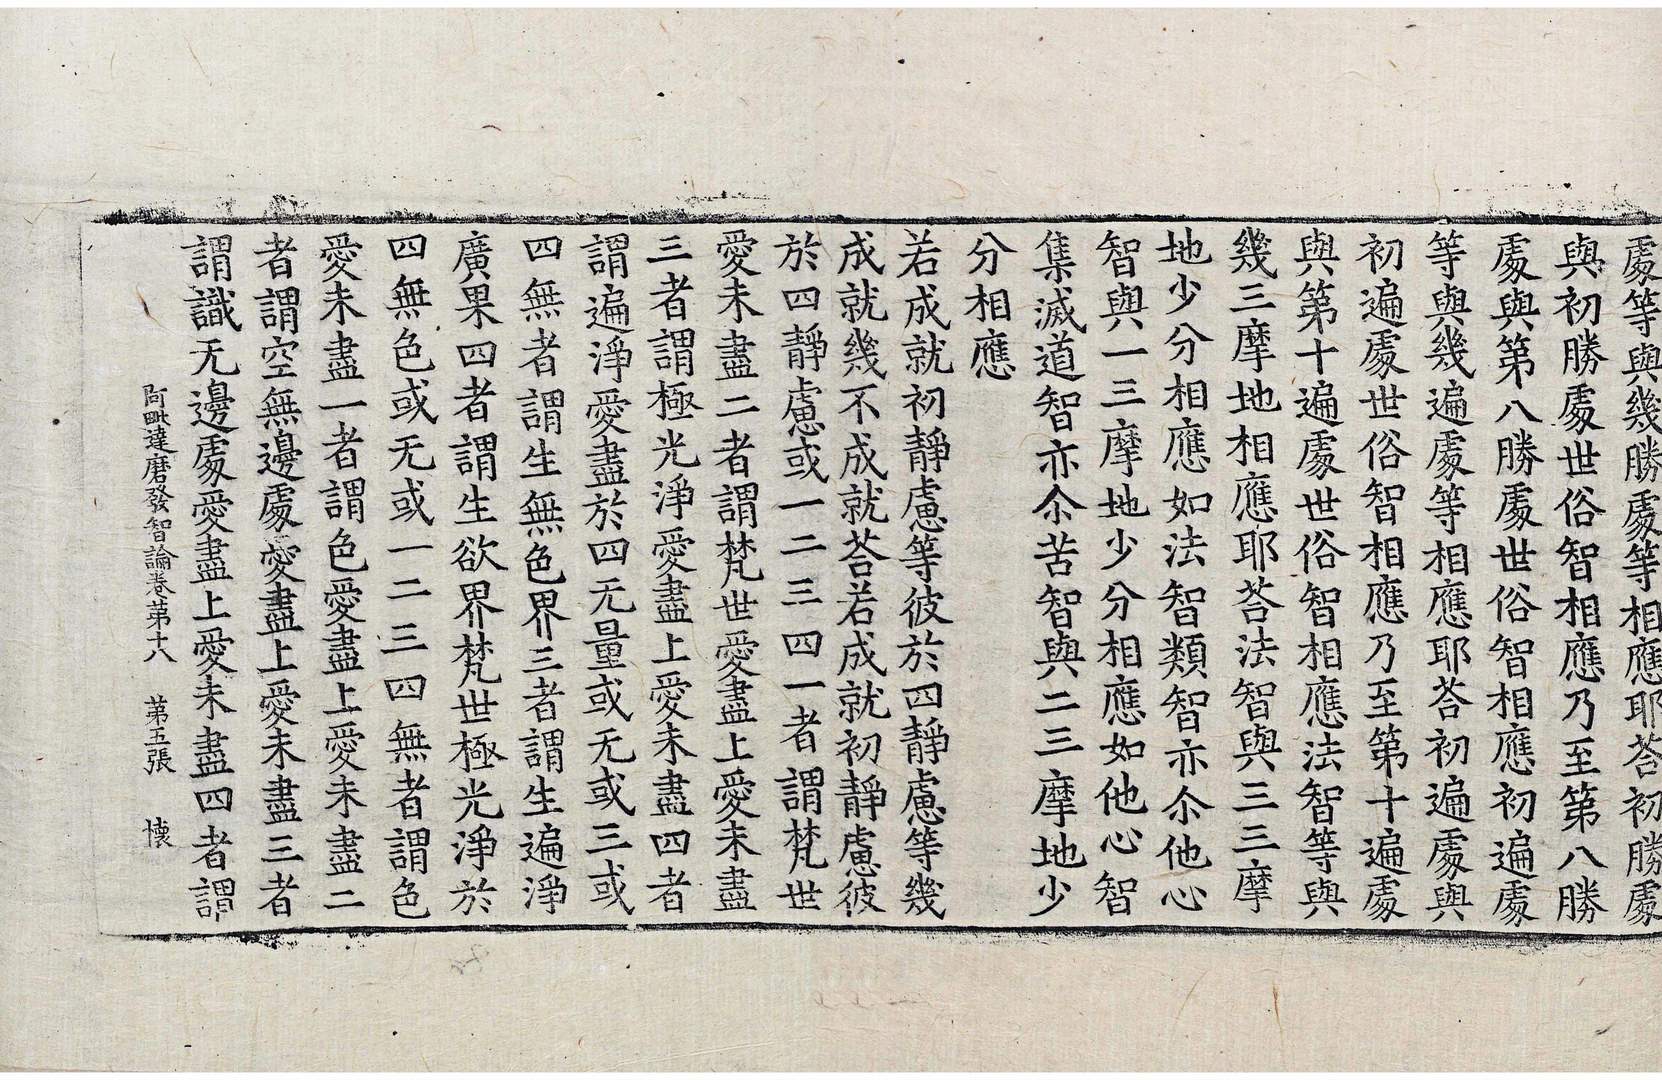 處等與幾勝處等相應耶荅初勝處
與初勝處世俗智相應乃至第八勝
處與第八勝處世俗智相應初遍處
等與幾遍處等相應耶荅初遍處與
初遍處世俗智相應乃至第十遍處
與第十遍處世俗智相應法智等與
幾三摩地相應耶荅法智與三三摩
地少分相應如法智類智亦尒他心
智與一三摩地少分相應如他心智
集滅道智亦尒苦智與二三摩地少
分相應
若成就初靜慮等彼於四靜慮等幾
成就幾不成就荅若成就初靜慮彼
於四靜慮或一二三四一者謂梵世
愛未盡二者謂梵世愛盡上愛未盡
三者謂極光淨愛盡上愛未盡四者
謂遍淨愛盡於四无量或无或三或
四無者謂生無色界三者謂生遍淨
廣果四者謂生欲界梵世極光淨於
四無色或无或一二三四無者謂色
愛未盡一者謂色愛盡上愛未盡二
者謂空無邊處愛盡上愛未盡三者
謂識无邊處愛盡上愛未盡四者謂
阿毗達磨發智論卷第十八　第五張　懷